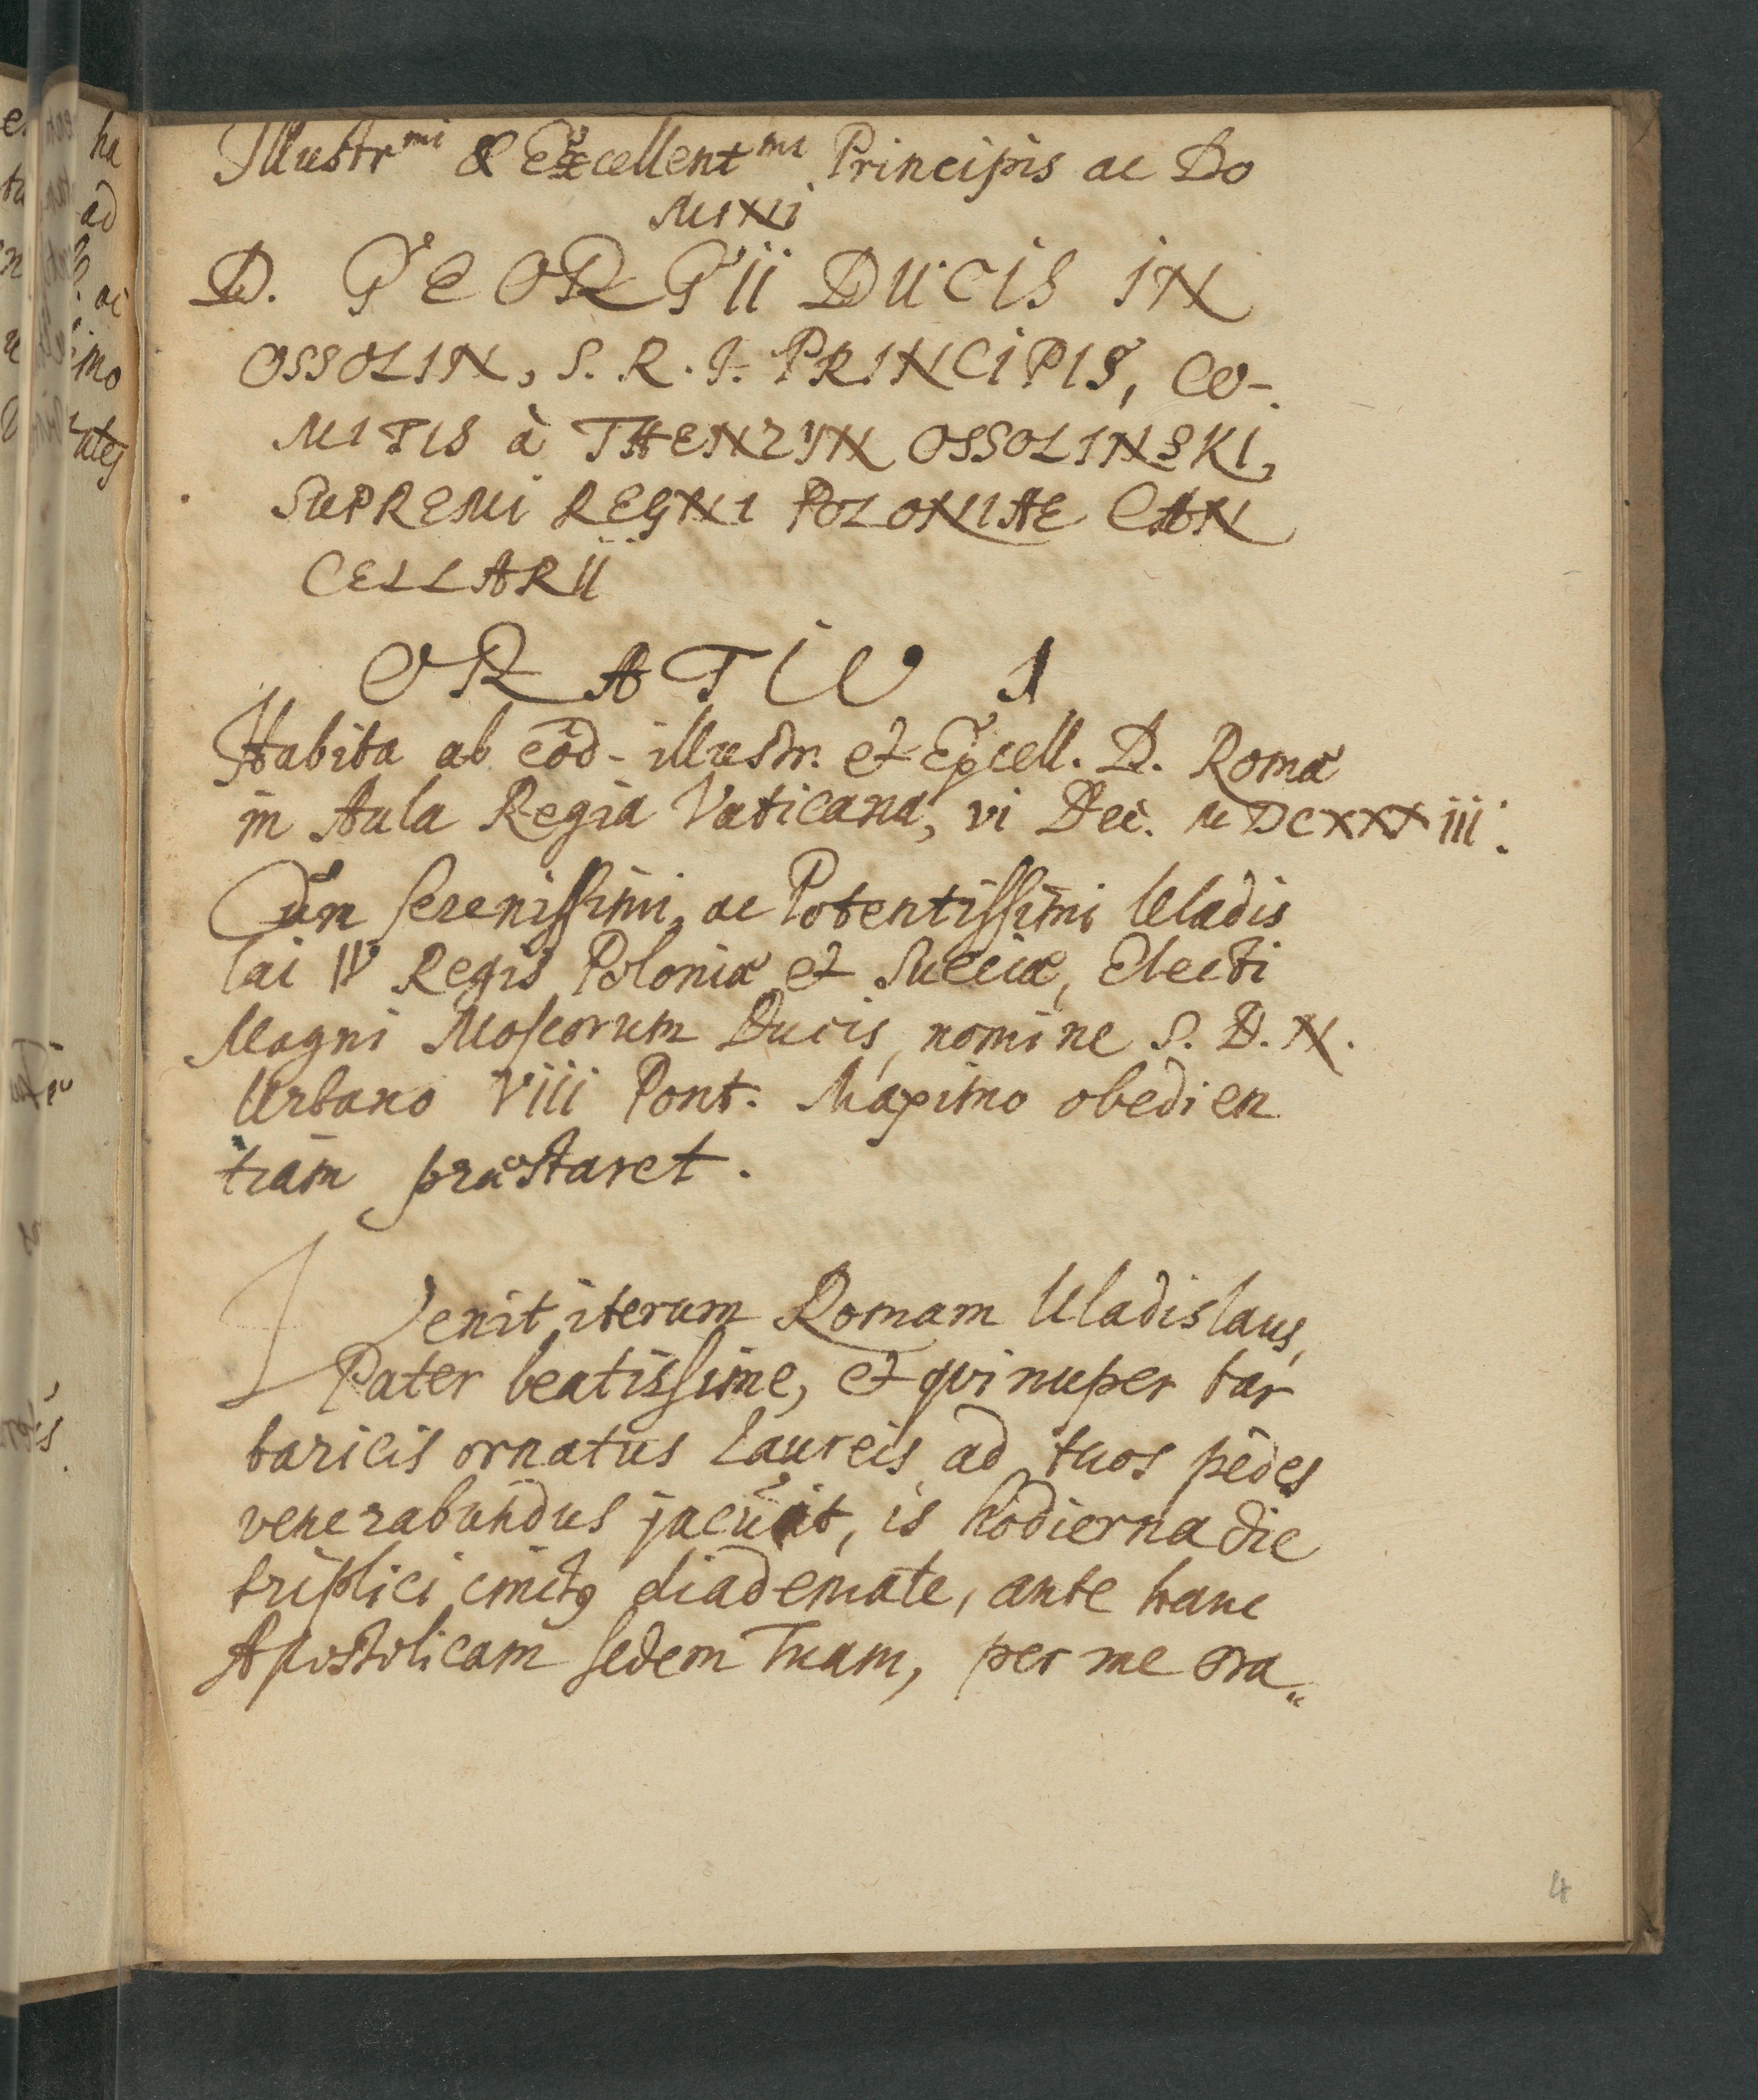 Illustr^mi & Excellent^mi Principis ac Do
MINI
D. GEORGII DUCIS IN
OSSOLIN, S. R. I. PRINCIPIS, CO-
MITIS à THENZYN OSSOLINSKI,
SUPREMI REGNI POLONIAE CAN
CELLARII
ORATIO 1
Habita ab eod- illustr. et Excell. D. Romæ
in Aula Regia Vaticana, vi Dec. MDCXXXiii.
Cum serenissimi, ac Potentissimi Uladis
lai IV Regis Poloniæ et Sueciæ, Electi
Magni Moscorum Ducis, nomine S. D. N.
Urbano Viii Pont. Maximo obedien
tiam præstaret.
Venit iterum Romam Uladislaus,
Pater beatissime, et qvi nuper bar
baricis ornatus Laureis ad tuos pedes
venerabundus jacuit, is hodierna die
triplici cinctꝰ diademate, ante hanc
Apostolicam sedem Tuam, per me ora„
4
ha
ad
ac
imo